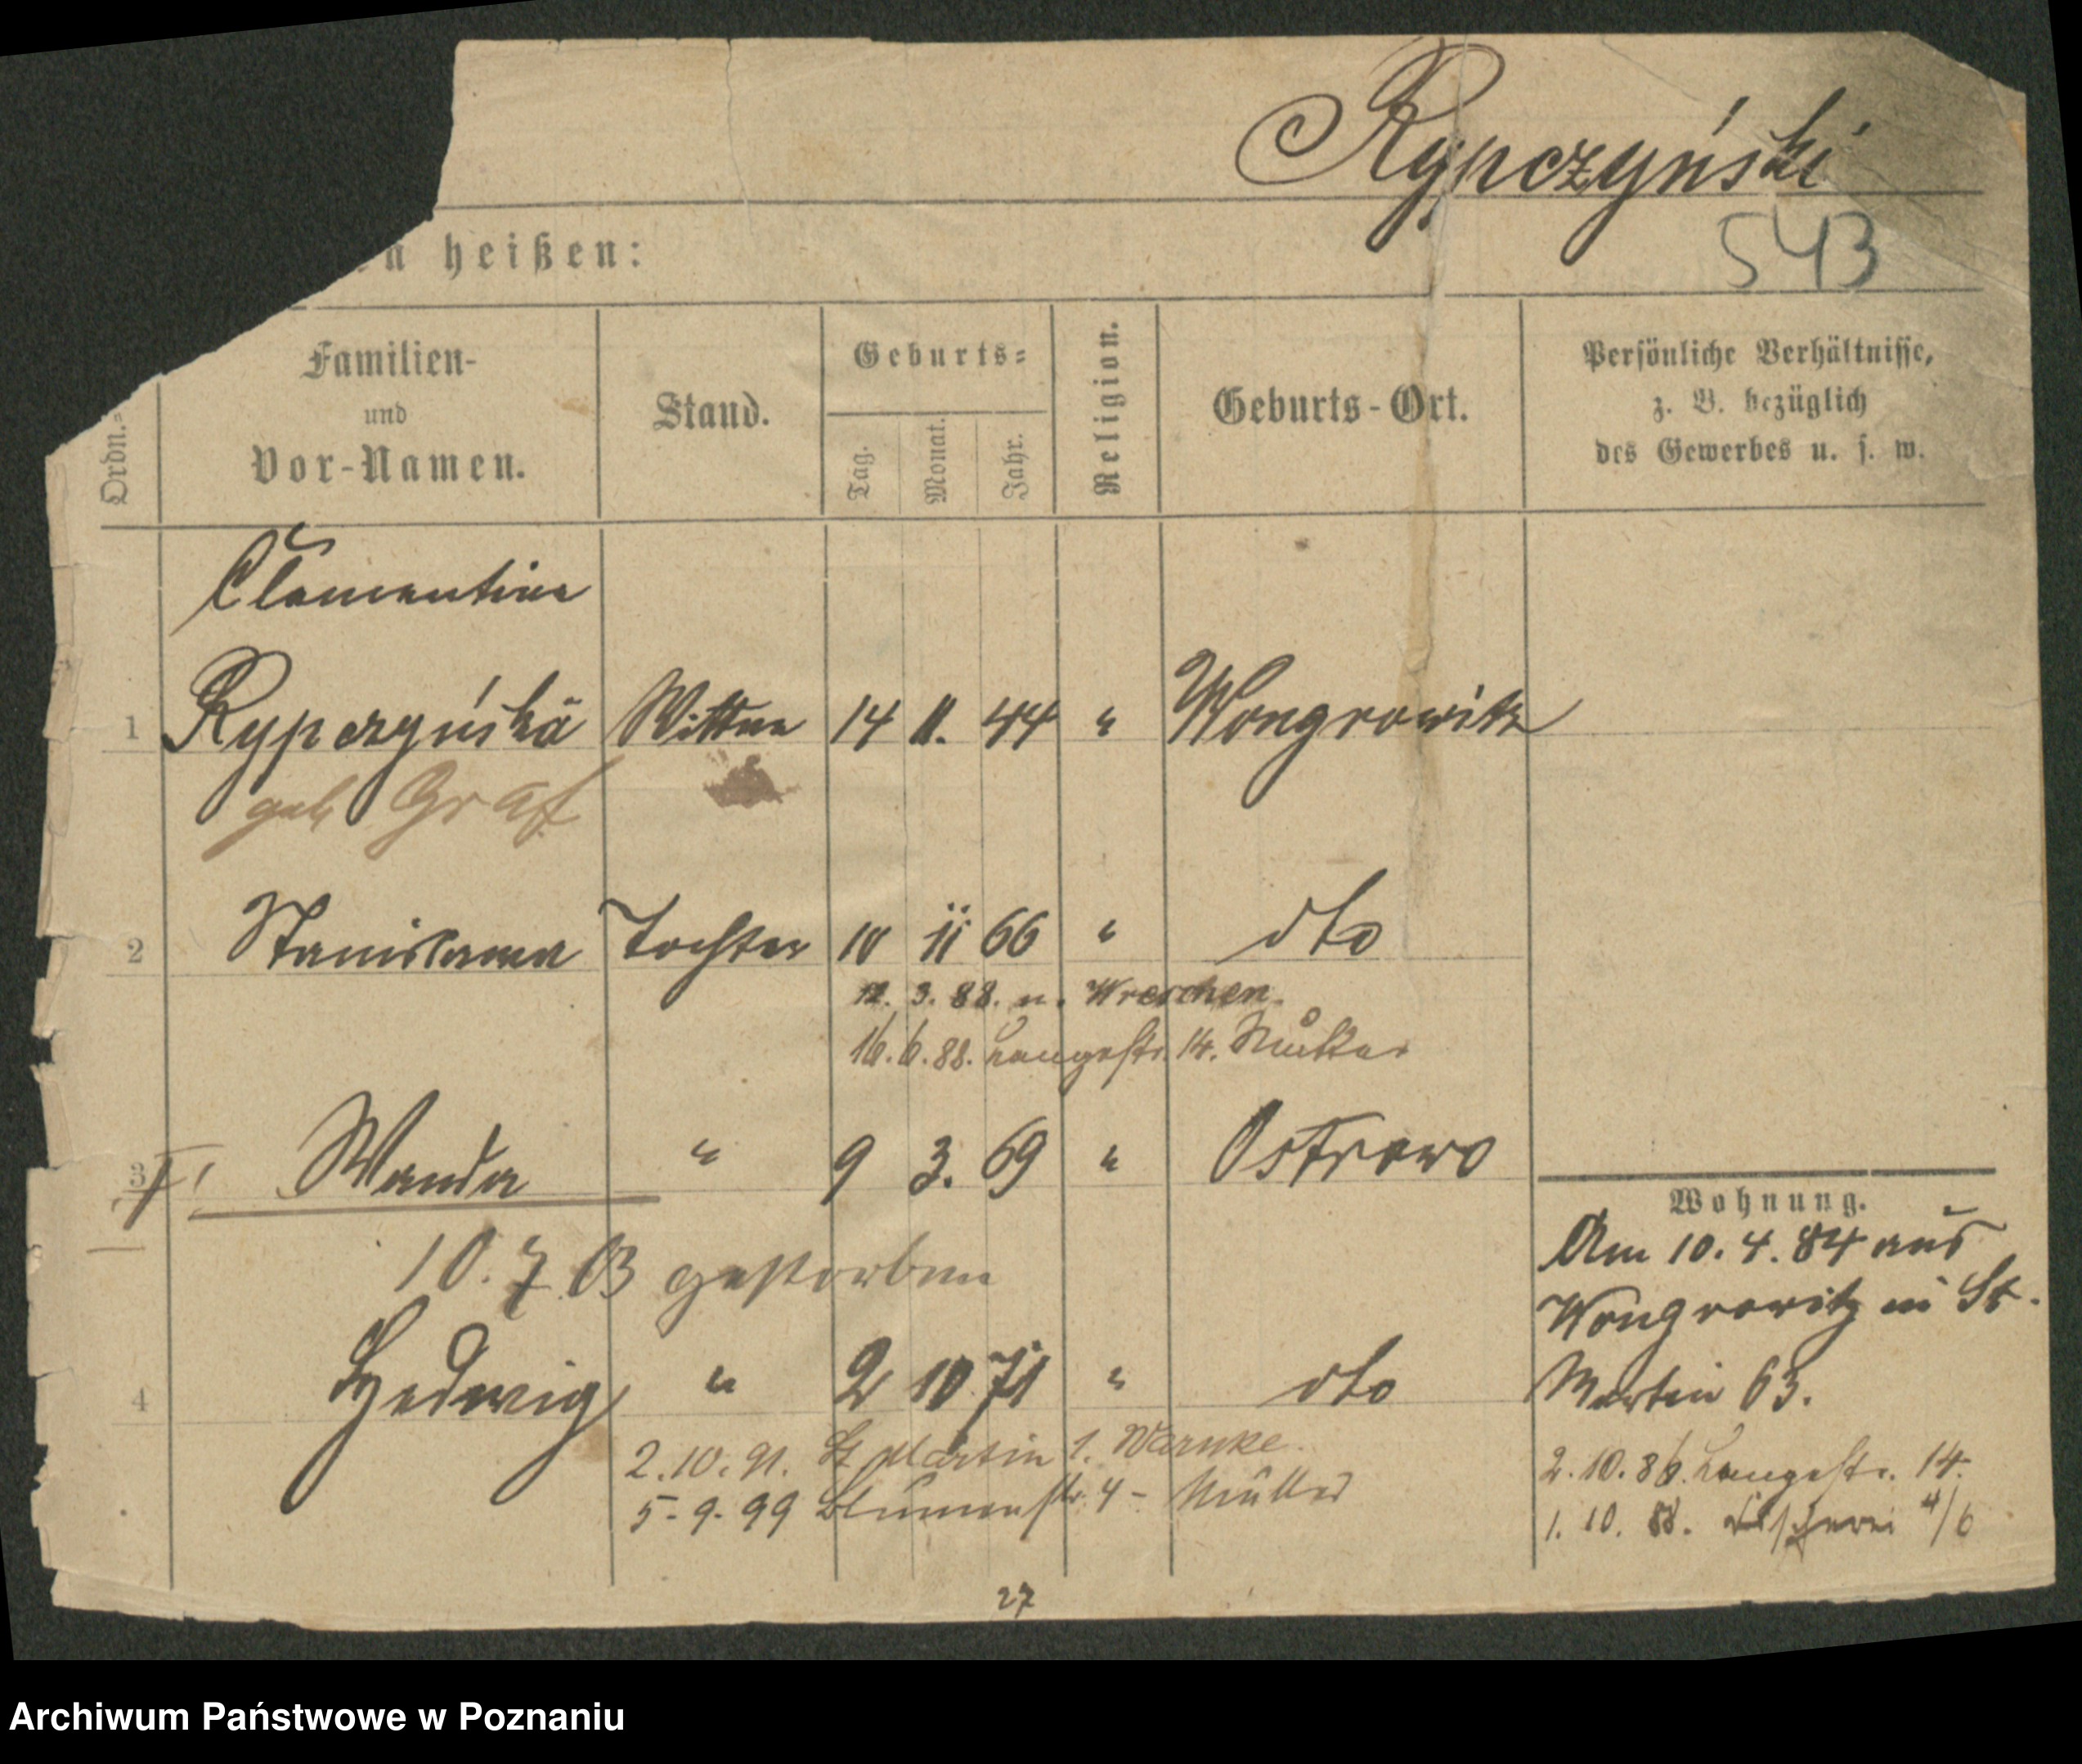 Rypczyński
543
n heißen:
Ordn.-
Familien-
und
Vor-Namen.
Stand.
Geburts-
Tag.
Monat.
Jahr.
Religion.
Geburts-Ort.
Persönliche Verhältnisse,
z. B. bezüglich
des Gewerbes u. s. w.
Clementine
1 Rypczyńska Wittwe 14 11. 44 " Wongrowitz
geb Graf
2 Stanislawa Tochter 10 11 66 " dto
12. 3. 88. n. Wreschen.
16. 6. 88. Langestr. 14. Mutter
3 Wanda " 9 3. 69 " Ostrowo
10. 7 03 gestorben
4 Hedwig " 2 10 71 " dto
2. 10. 91. St Martin 1. Warnke.
5-9-99 Blumenstr. 4 - Müller
Wohnung.
Am 10. 4. 84 aus
Wongrowitz in St.
Martin 63.
2. 10. 86. Langestr. 14.
1. 10. 88. Fischerei 4/6
27
Archiwum Państwowe w Poznaniu